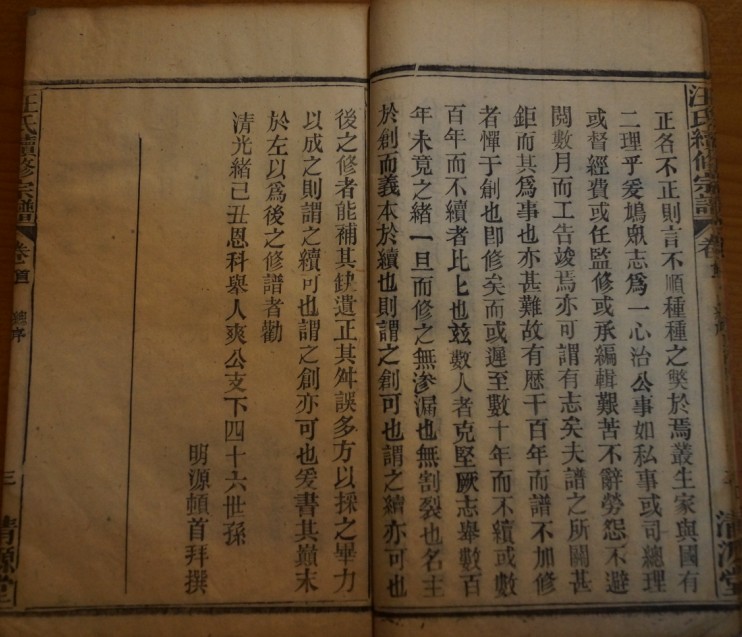 汪氏續修宗譜 卷首
正各不正則言不順種種之獘於焉叢生家與國有
二理乎爰鳩眾志爲一心治公事如私事或司總理
或督經費或任監修或承編輯艱苦不辭勞怨不避
閱數月而工告竣焉亦可謂有志矣夫譜之所關甚
鉅而其爲事也亦甚難故有歷千百年而譜不加修
者憚于創也卽修矣而或遲至數十年而不續或數
百年而不續者比比也玆數人者克堅厥志舉數百
年未竟之緒一旦而修之無滲漏也無割裂也名主
於創而義本於續也則謂之創可也謂之續亦可也
清源堂
後之修者能補其缺遺正其舛誤多方以採之畢力
以成之則謂之續可也謂之創亦可也爰書其巔末
於左以爲後之修譜者勸
清光緒己丑恩科舉人爽公支下四十六世孫
明源頓首拜撰
汪氏續修宗譜 卷首 總序 三 清源堂